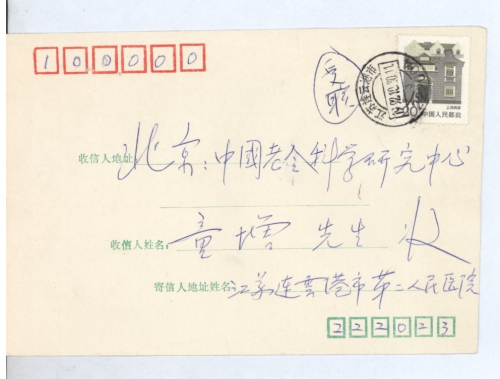 100000
受
中国人民邮政
收信人地址：北京：中國老令科学研究中心
收信人姓名：童增 先生 收
寄信人地址姓名：江苏連雲港市第二人民医院
222023